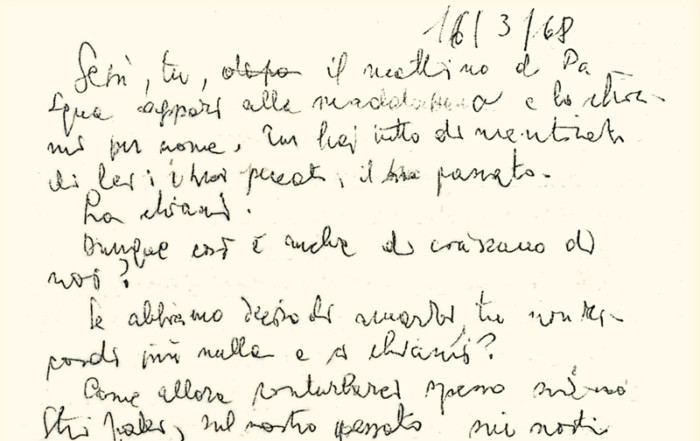 16/3/68
Gesù, tu, dopo il mattino di Pa
squa appari alla maddalena e la chia-
mi per nome. Tu hai tutto dimenticato
di lei: i suoi peccati, il suo passato.
La chiami.
Dunque così è anche di ciascuno di
noi?
Se abbiamo deciso di amarti, tu non ri-
cordi più nulla e ci chiami?
Come allora conturbarci spesso
sul nostro passato sui nostri